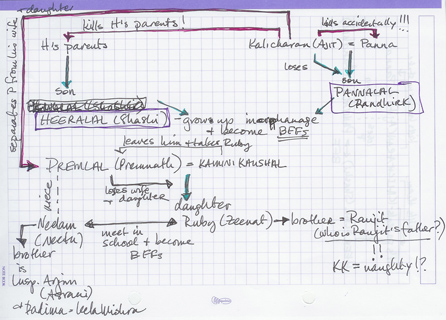 + daughter
separates P from his wife
kills His parents!
kills accidentally!!!
His parents
Kalicharan (AJIT) = Panna
loses
son
son
PANNALAL
(Randhir K)
HEERALAL (Shashi)
- grows up in orphanage
+ become BFFs
leaves him + takes Ruby
PREMLAL (Premnath) = KAMINI KAUSHAL
loses wife
+ daughter
daughter
niece
Neelam
(Neetu)
meet in
school + become
BFFs
Ruby (Zeenat)
brother = Ranjit
(who is Ranjit's father?)
!!
KK = naughty!?
brother
is
Insp. Arjun
(Asrani)
+ Padima - Leela Mishra